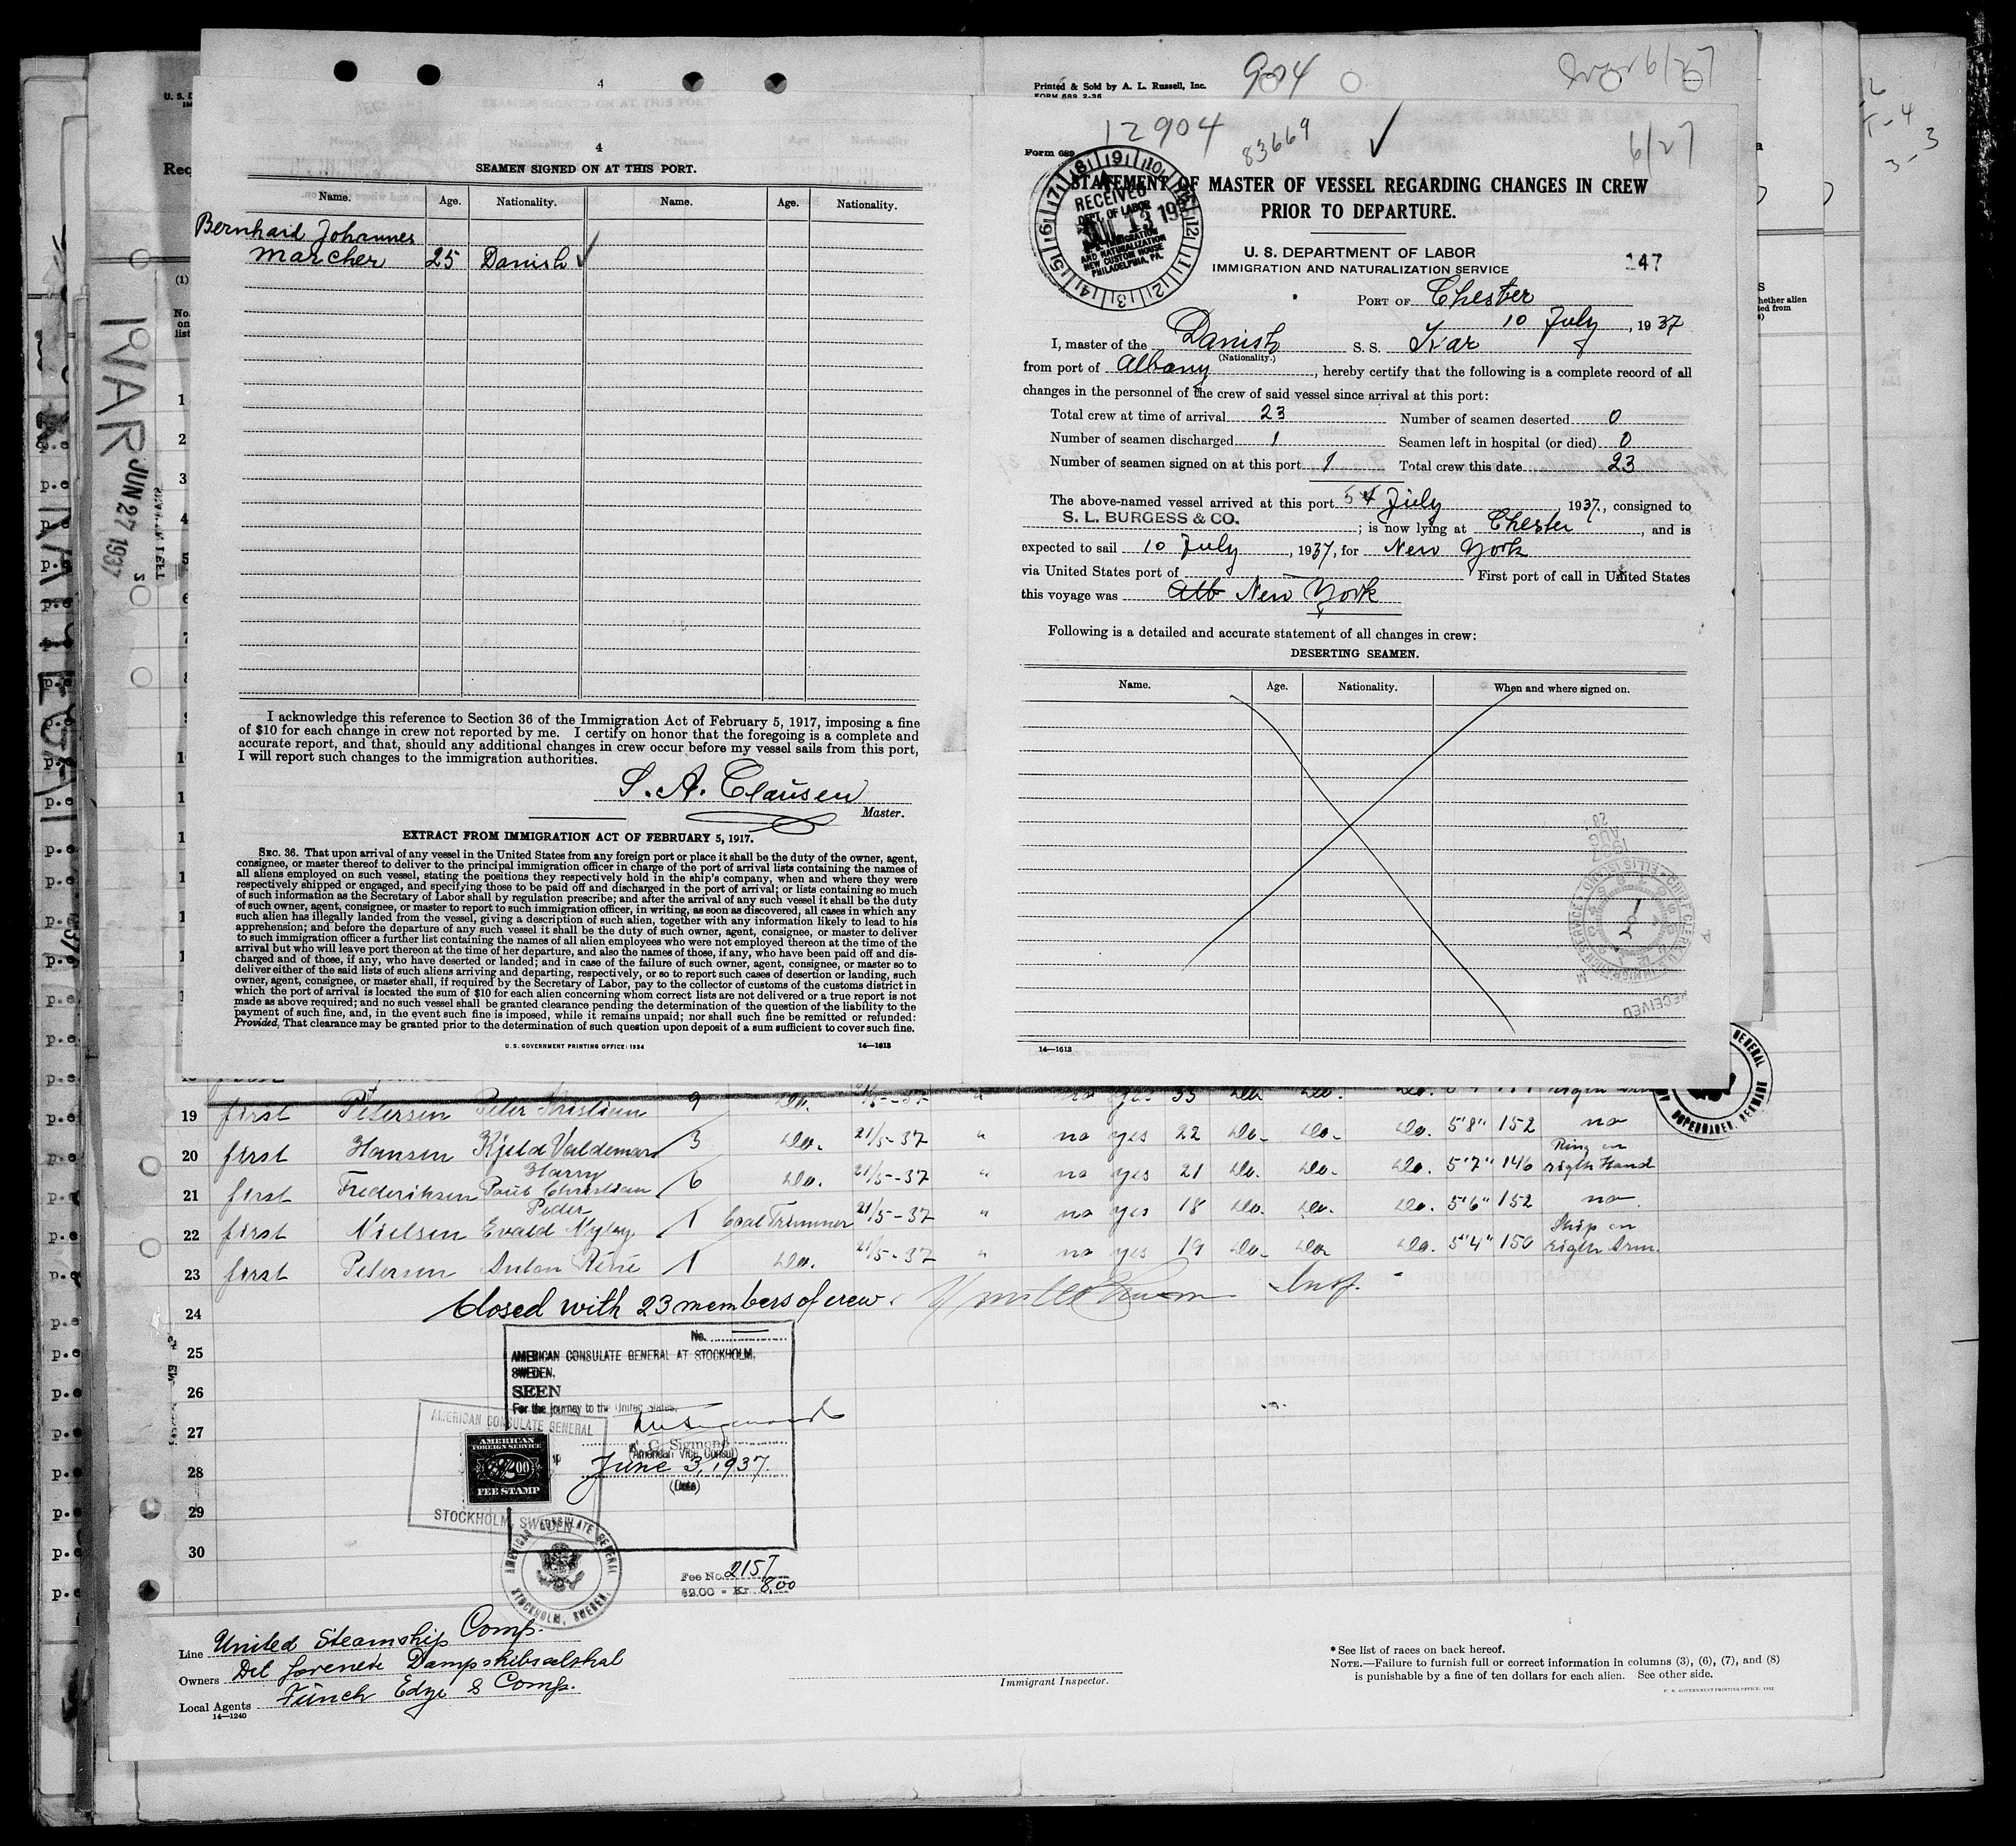 4
4
SEAMEN SIGNED ON AT THIS PORT.
Name. Age. Nationality. Name. Age. Nationality.
Bernhard Johannes
Marcher 25 Danish ✓
I acknowledge this reference to Section 36 of the Immigration Act of February 5, 1917, imposing a fine
of $10 for each change in crew not reported by me. I certify on honor that the foregoing is a complete and
accurate report, and that, should any additional changes in crew occur before my vessel sails from this port,
I will report such changes to the immigration authorities.
S. A. Clausen
Master.
EXTRACT FROM IMMIGRATION ACT OF FEBRUARY 5, 1917.
SEC. 36. That upon arrival of any vessel in the United States from any foreign port or place it shall be the duty of the owner, agent,
consignee, or master thereof to deliver to the principal immigration officer in charge of the port of arrival lists containing the names of
all aliens employed on such vessel, stating the positions they respectively hold in the ship's company, when and where they were
respectively shipped or engaged, and specifying those to be paid off and discharged in the port of arrival; or lists containing so much
of such information as the Secretary of Labor shall by regulation prescribe; and after the arrival of any such vessel it shall be the duty
of such owner, agent, consignee, or master to report to such immigration officer, in writing, as soon as discovered, all cases in which any
such alien has illegally landed from the vessel, giving a description of such alien, together with any information likely to lead to his
apprehension; and before the departure of any such vessel it shall be the duty of such owner, agent, consignee, or master to deliver
to such immigration officer a further list containing the names of all alien employees who were not employed thereon at the time of the
arrival but who will leave port thereon at the time of her departure, and also the names of those, if any, who have been paid off and dis-
charged and of those, if any, who have deserted or landed; and in case of the failure of such owner, agent, consignee, or master so to
deliver either of the said lists of such aliens arriving and departing, respectively, or so to report such cases of desertion or landing, such
owner, agent, consignee, or master shall, if required by the Secretary of Labor, pay to the collector of customs of the customs district in
which the port of arrival is located the sum of $10 for each alien concerning whom correct lists are not delivered or a true report is not
made as above required; and no such vessel shall be granted clearance pending the determination of the question of the liability to the
payment of such fine, and, in the event such fine is imposed, while it remains unpaid; nor shall such fine be remitted or refunded:
Provided, That clearance may be granted prior to the determination of such question upon deposit of a sum sufficient to cover such fine.
U. S. GOVERNMENT PRINTING OFFICE: 1934 14—1613
Printed & Sold by A. L. Russell, Inc. 904
FORM 689 2-36
12904 83669 ✓ 6/27
Form 689
STATEMENT OF MASTER OF VESSEL REGARDING CHANGES IN CREW
PRIOR TO DEPARTURE.
RECEIVED
DEPT. OF LABOR
JUL 13 193
IMMIGRATION
AND NATURALIZATION
NEW CUSTOM HOUSE
PHILADELPHIA, PA.
U. S. DEPARTMENT OF LABOR
IMMIGRATION AND NATURALIZATION SERVICE
147
PORT OF Chester
10 July, 1937
I, master of the Danish S. S. Ivar
(Nationality.)
from port of Albany, hereby certify that the following is a complete record of all
changes in the personnel of the crew of said vessel since arrival at this port:
Total crew at time of arrival 23 Number of seamen deserted 0
Number of seamen discharged 1 Seamen left in hospital (or died) 0
Number of seamen signed on at this port 1 Total crew this date 23
The above-named vessel arrived at this port 5 July 1937, consigned to
S. L. BURGESS & CO.; is now lying at Chester, and is
expected to sail 10 July, 1937, for New York
via United States port of First port of call in United States
this voyage was Alb New York
Following is a detailed and accurate statement of all changes in crew:
DESERTING SEAMEN.
Name. Age. Nationality. When and where signed on.
14—1613
IVAR
JUN 27 1937
19 first Petersen Peter Kristian 9 do. 21/5-37 " no yes 33 do do. do.
20 first Hansen Kjeld Valdemar 3 do. 21/5-37 " no yes 22 do. do. do. 5'8" 152 no
21 first Frederiksen Harry Poul Christian 6 do. 21/5-37 " no yes 21 do. do. do. 5'7" 146 Ring on rigth Hand
22 first Nielsen Peder Evald Nyby 1 Coal Trimmer 21/5-37 " no yes 18 do. do. do. 5'6" 152 no
23 first Petersen Anton Rene 1 do. 21/5-37 " no yes 19 do. do. do. 5'4" 150 Ship on rigth Arm.
24 Closed with 23 members of crew. Insp.
25
26
27
28
29
30
No.
AMERICAN CONSULATE GENERAL AT STOCKHOLM,
SWEDEN.
SEEN
For the journey to the United States.
C. Sigmond
(American Vice Consul)
June 3, 1937.
(Date)
AMERICAN CONSULATE GENERAL
STOCKHOLM, SWEDEN
AMERICAN
FOREIGN SERVICE
$2.00
FEE STAMP
AMERICAN CONSULATE GENERAL
STOCKHOLM, SWEDEN.
Fee No. 2157
$2.00 = Kr. 8.00
Line United Steamship Comp.
Owners Det forenede Dampskibsselskab
Local Agents Funch Edye & Comp.
14—1240
Immigrant Inspector.
* See list of races on back hereof.
NOTE.—Failure to furnish full or correct information in columns (3), (6), (7), and (8)
is punishable by a fine of ten dollars for each alien. See other side.
U. S. GOVERNMENT PRINTING OFFICE: 1932